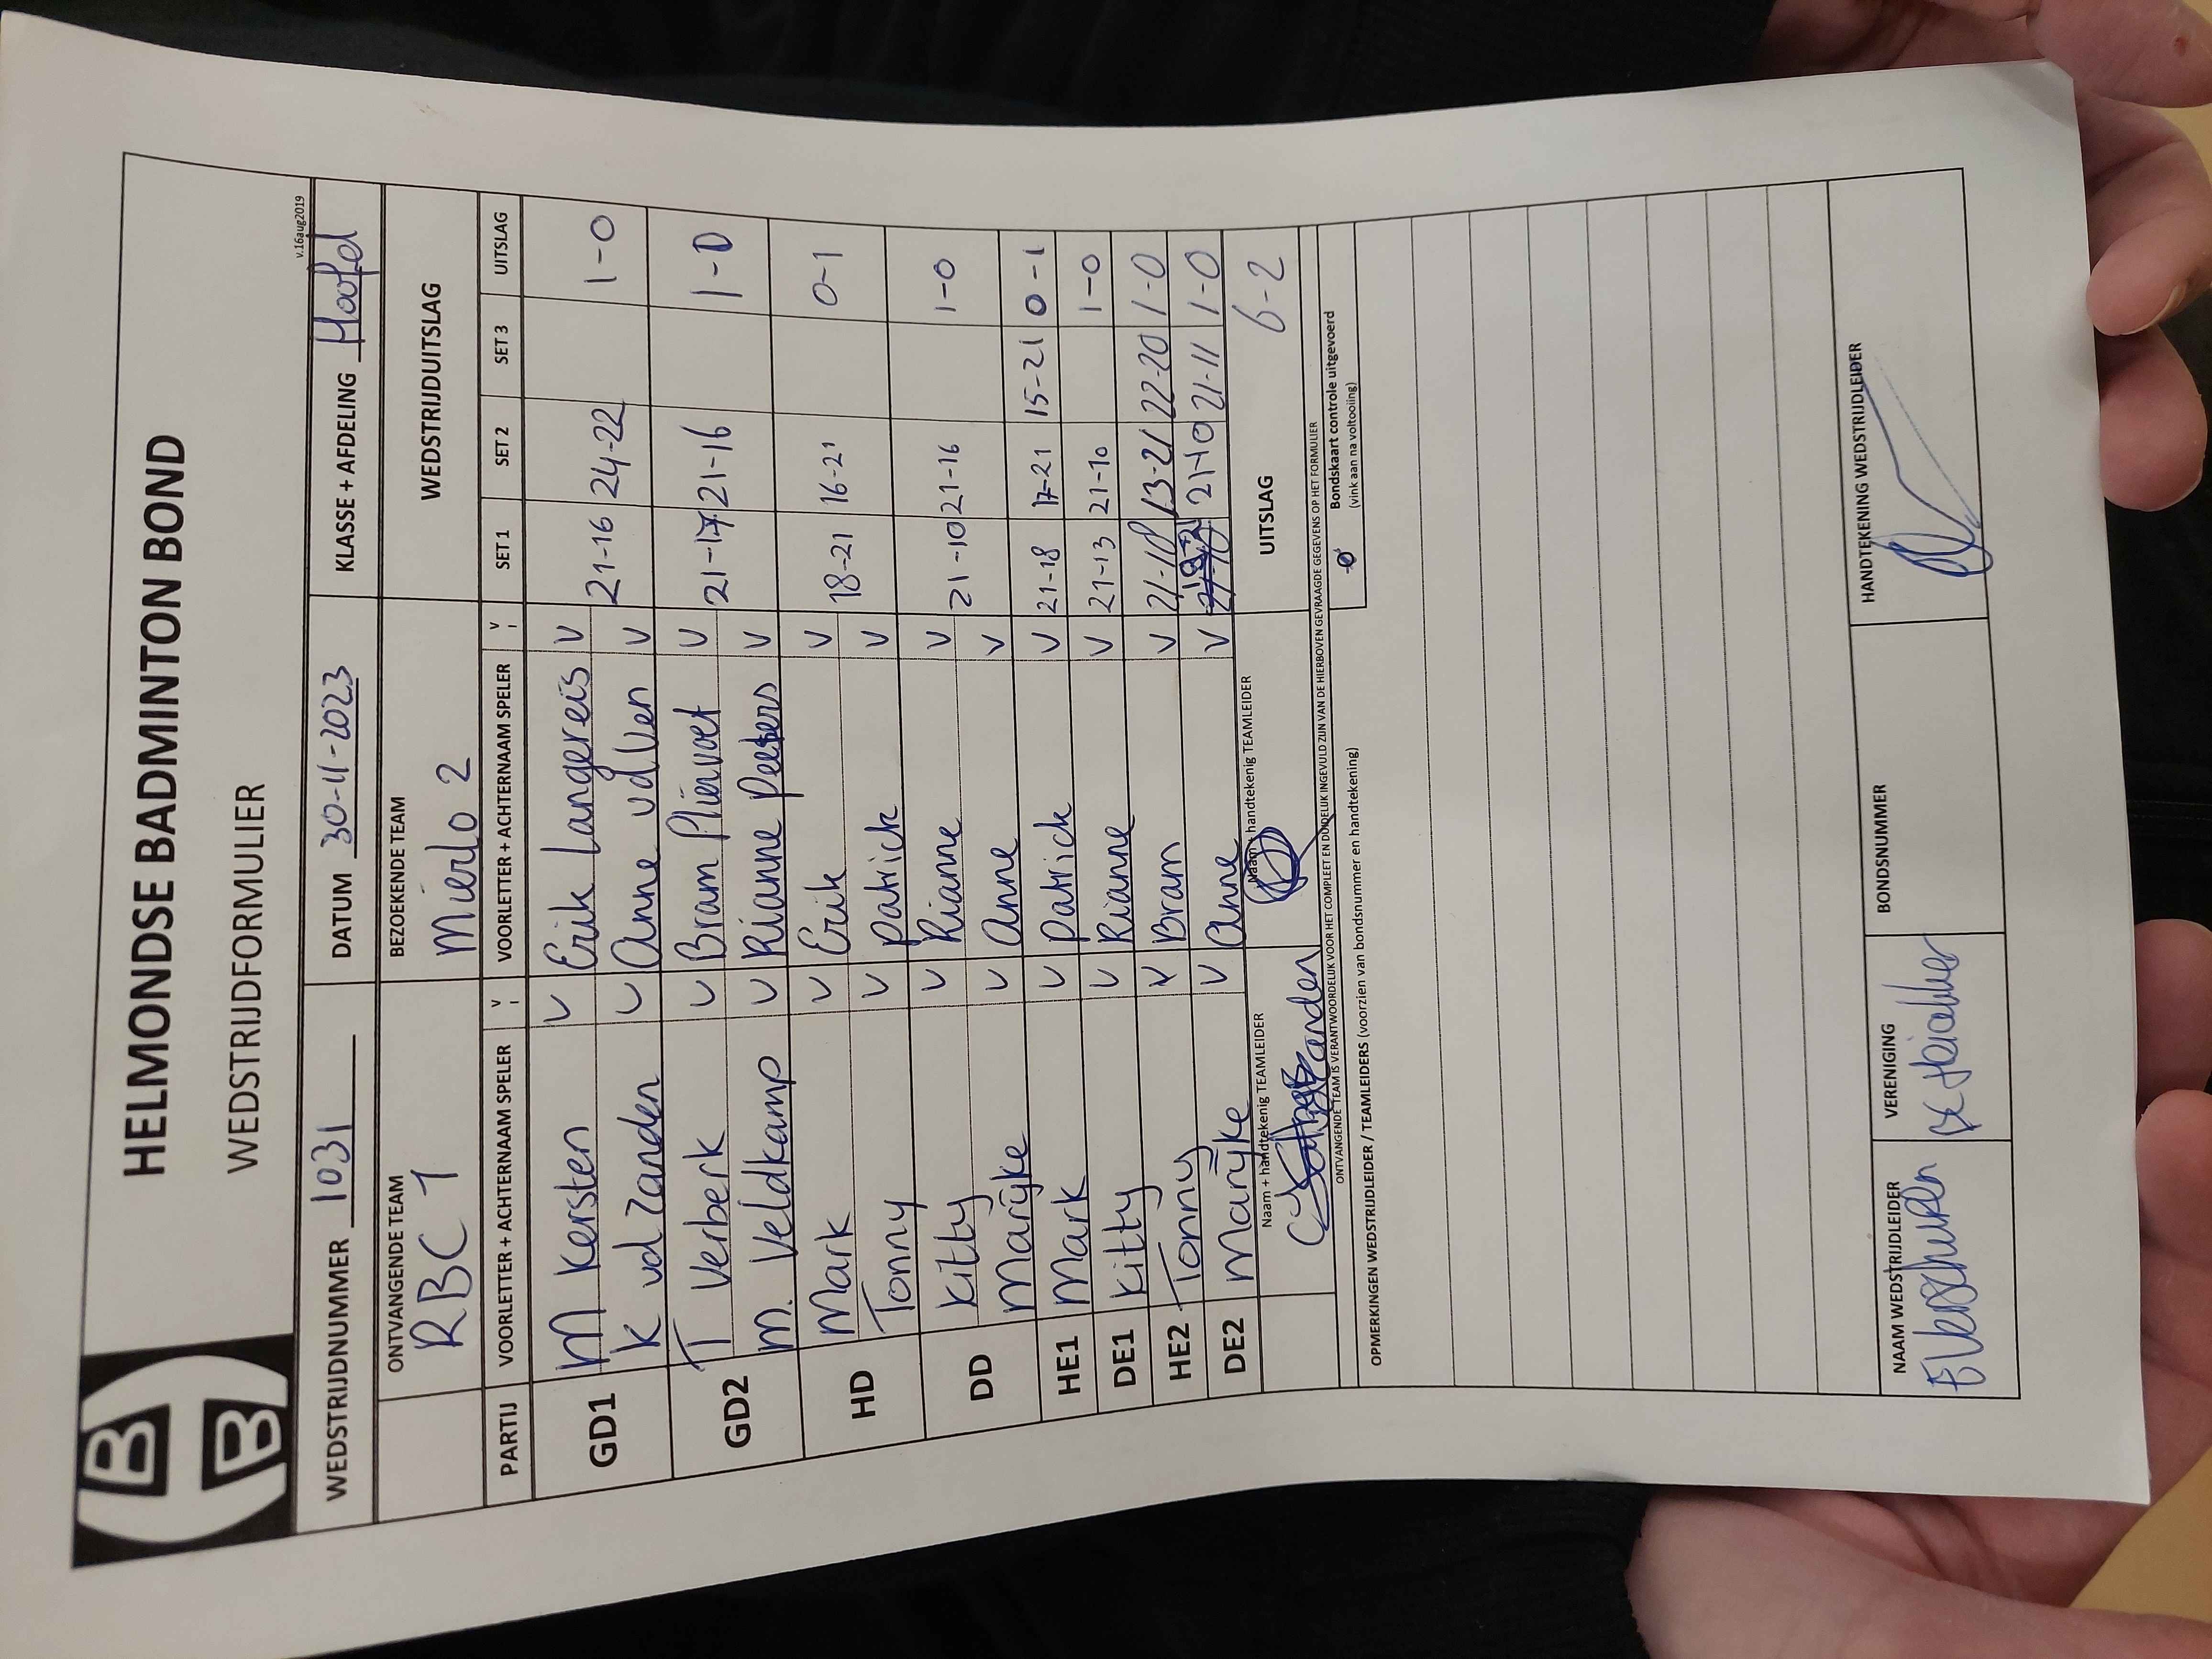 HELMONDSE BADMINTON BOND
WEDSTRIJDFORMULIER
v.16aug2019
WEDSTRIJDNUMMER 1031 DATUM 30-11-2023 KLASSE + AFDELING Hoofd
ONTVANGENDE TEAM BEZOEKENDE TEAM WEDSTRIJDUITSLAG
RBC 1 Mierlo 2
PARTIJ VOORLETTER + ACHTERNAAM SPELER V VOORLETTER + ACHTERNAAM SPELER V SET 1 SET 2 SET 3 UITSLAG
GD1 M Kersten V Erik Langereis V 21-16 24-22 1-0
K vd Zanden V Anne vd Ven V
GD2 T Verberk V Bram Plienvoet V 21-17 21-16 1-0
M. Veldkamp V Rianne Peeters V
HD Mark V Erik V 18-21 16-21 0-1
Tonny V Patrick V
DD Kitty V Rianne V 21-10 21-16 1-0
Marijke V Anne V
HE1 Mark V Patrick V 21-18 17-21 15-21 0-1
DE1 Kitty V Rianne V 21-13 21-10 1-0
HE2 Tonny V Bram V 21-18 13-21 22-20 1-0
DE2 Marijke V Anne V 21-11 1-0
Naam + handtekenig TEAMLEIDER Naam + handtekenig TEAMLEIDER UITSLAG 6-2
ONTVANGENDE TEAM IS VERANTWOORDELIJK VOOR HET COMPLEET EN DUIDELIJK INGEVULD ZIJN VAN DE HIERBOVEN GEVRAAGDE GEGEVENS OP HET FORMULIER
Bondskaart controle uitgevoerd
(vink aan na voltooiing)
OPMERKINGEN WEDSTRIJDLEIDER / TEAMLEIDERS (voorzien van bondsnummer en handtekening)
NAAM WEDSTRIJDLEIDER VERENIGING BONDSNUMMER HANDTEKENING WEDSTRIJDLEIDER